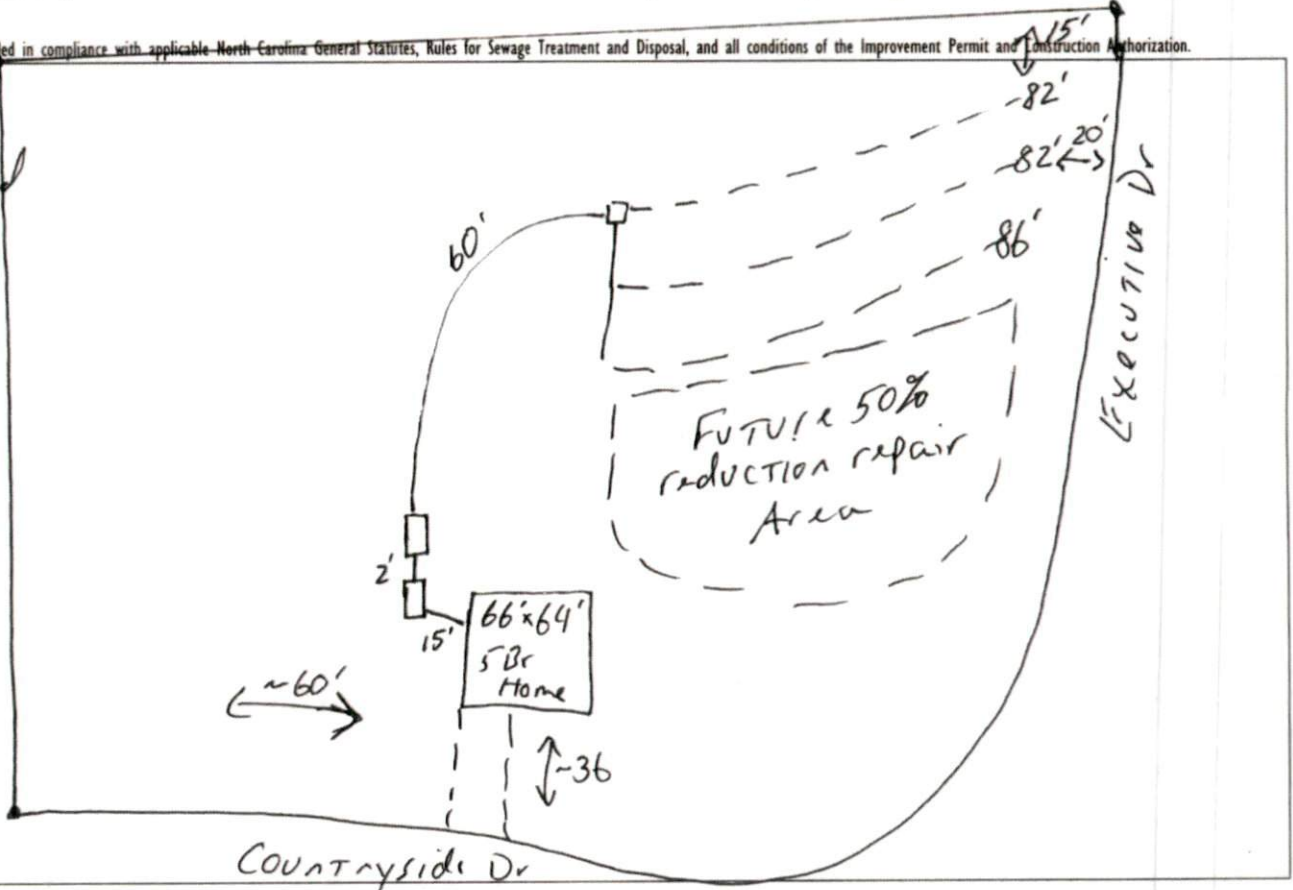 ed in compliance with applicable North Carolina General Statutes, Rules for Sewage Treatment and Disposal, and all conditions of the Improvement Permit and Construction Authorization.
15'
82'
82'
20'
86'
60'
Executive Dr
Future 50%
reduction repair
Area
2'
15'
66'x64'
5 Br
Home
~60'
~36
Countryside Dr